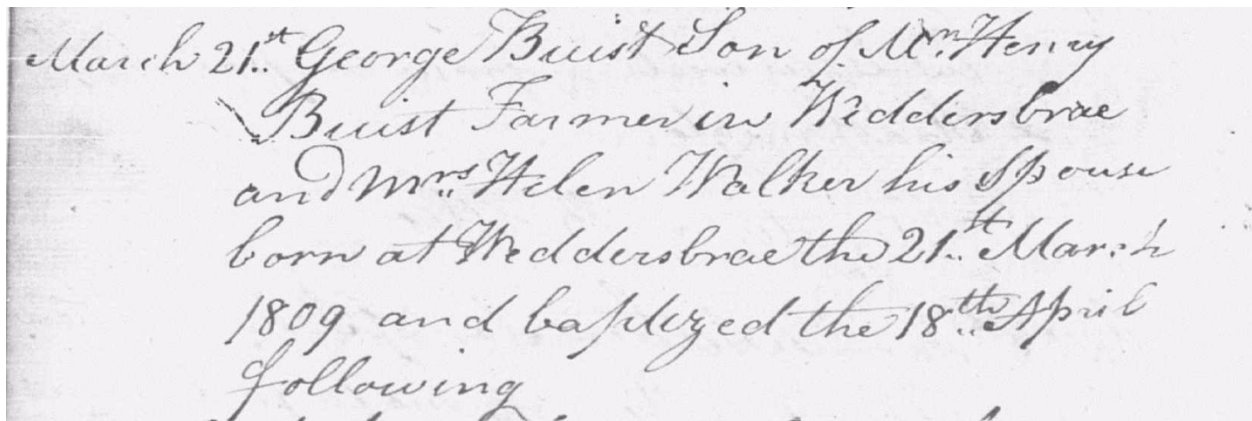 March 21st George Buist Son of Mr. Henry
Buist Farmer in Weddersbrae
and Mrs. Helen Walker his Spouse
born at Weddersbrae the 21st March
1809 and baptized the 18th April
following